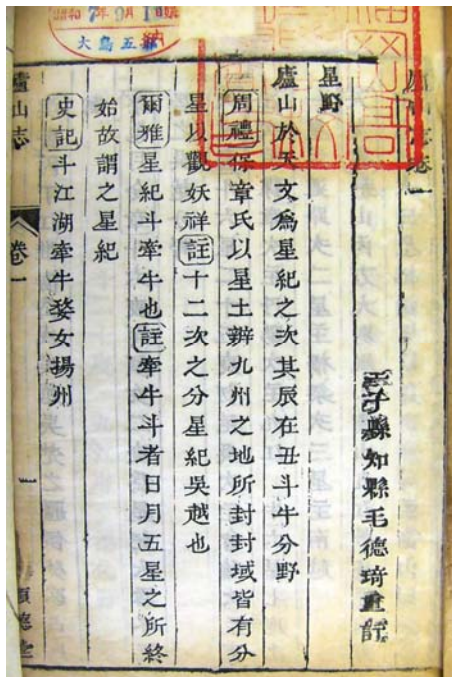 廬山志卷一
星子縣知縣毛德琦重訂
星野
廬山於天文爲星紀之次其辰在丑斗牛分野
周禮保章氏以星土辨九州之地所封封域皆有分
星以觀妖祥註十二次之分星紀吳越也
爾雅星紀斗牽牛也註牽牛斗者日月五星之所終
始故謂之星紀
史記斗江湖牽牛婺女揚州
廬山志
卷一
一
順德堂
昭和7年9月1日
大島五郎